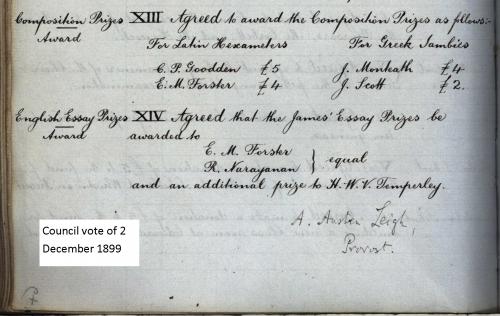 Composition Prizes XIII Agreed to award the Composition Prizes as follows:-
Award
For Latin Hexameters For Greek Iambics
C. P. Goodden £5 J. Monkath £4
E. M. Forster £4 J. Scott £2.
English Essay Prizes XIV Agreed that the James' Essay Prizes be
Award awarded to
E. M. Forster
R. Narayanan } equal
and an additional prize to H. W. V. Temperley.
A. Austen Leigh,
Provost.
Council vote of 2
December 1899